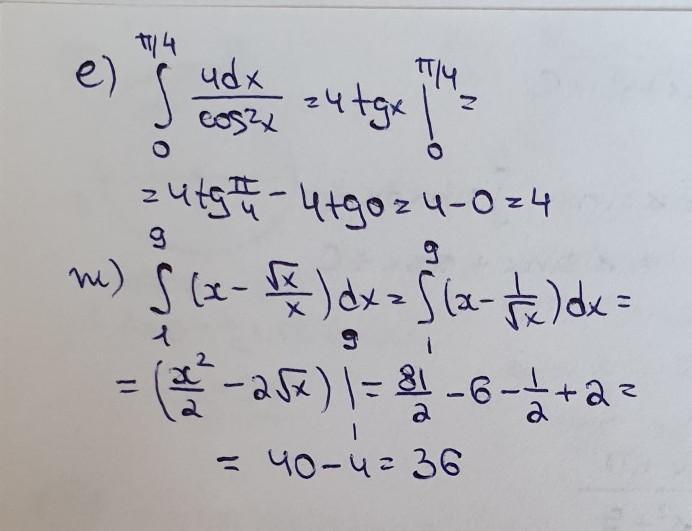 е) ∫₀^{π/4} 4dx/cos²x = 4 tgx |₀^{π/4} =
= 4 tg π/4 - 4 tg 0 = 4 - 0 = 4
ж) ∫₁⁹ (x - √x/x) dx = ∫₁⁹ (x - 1/√x) dx =
= (x²/2 - 2√x) |₁⁹ = 81/2 - 6 - 1/2 + 2 =
= 40 - 4 = 36